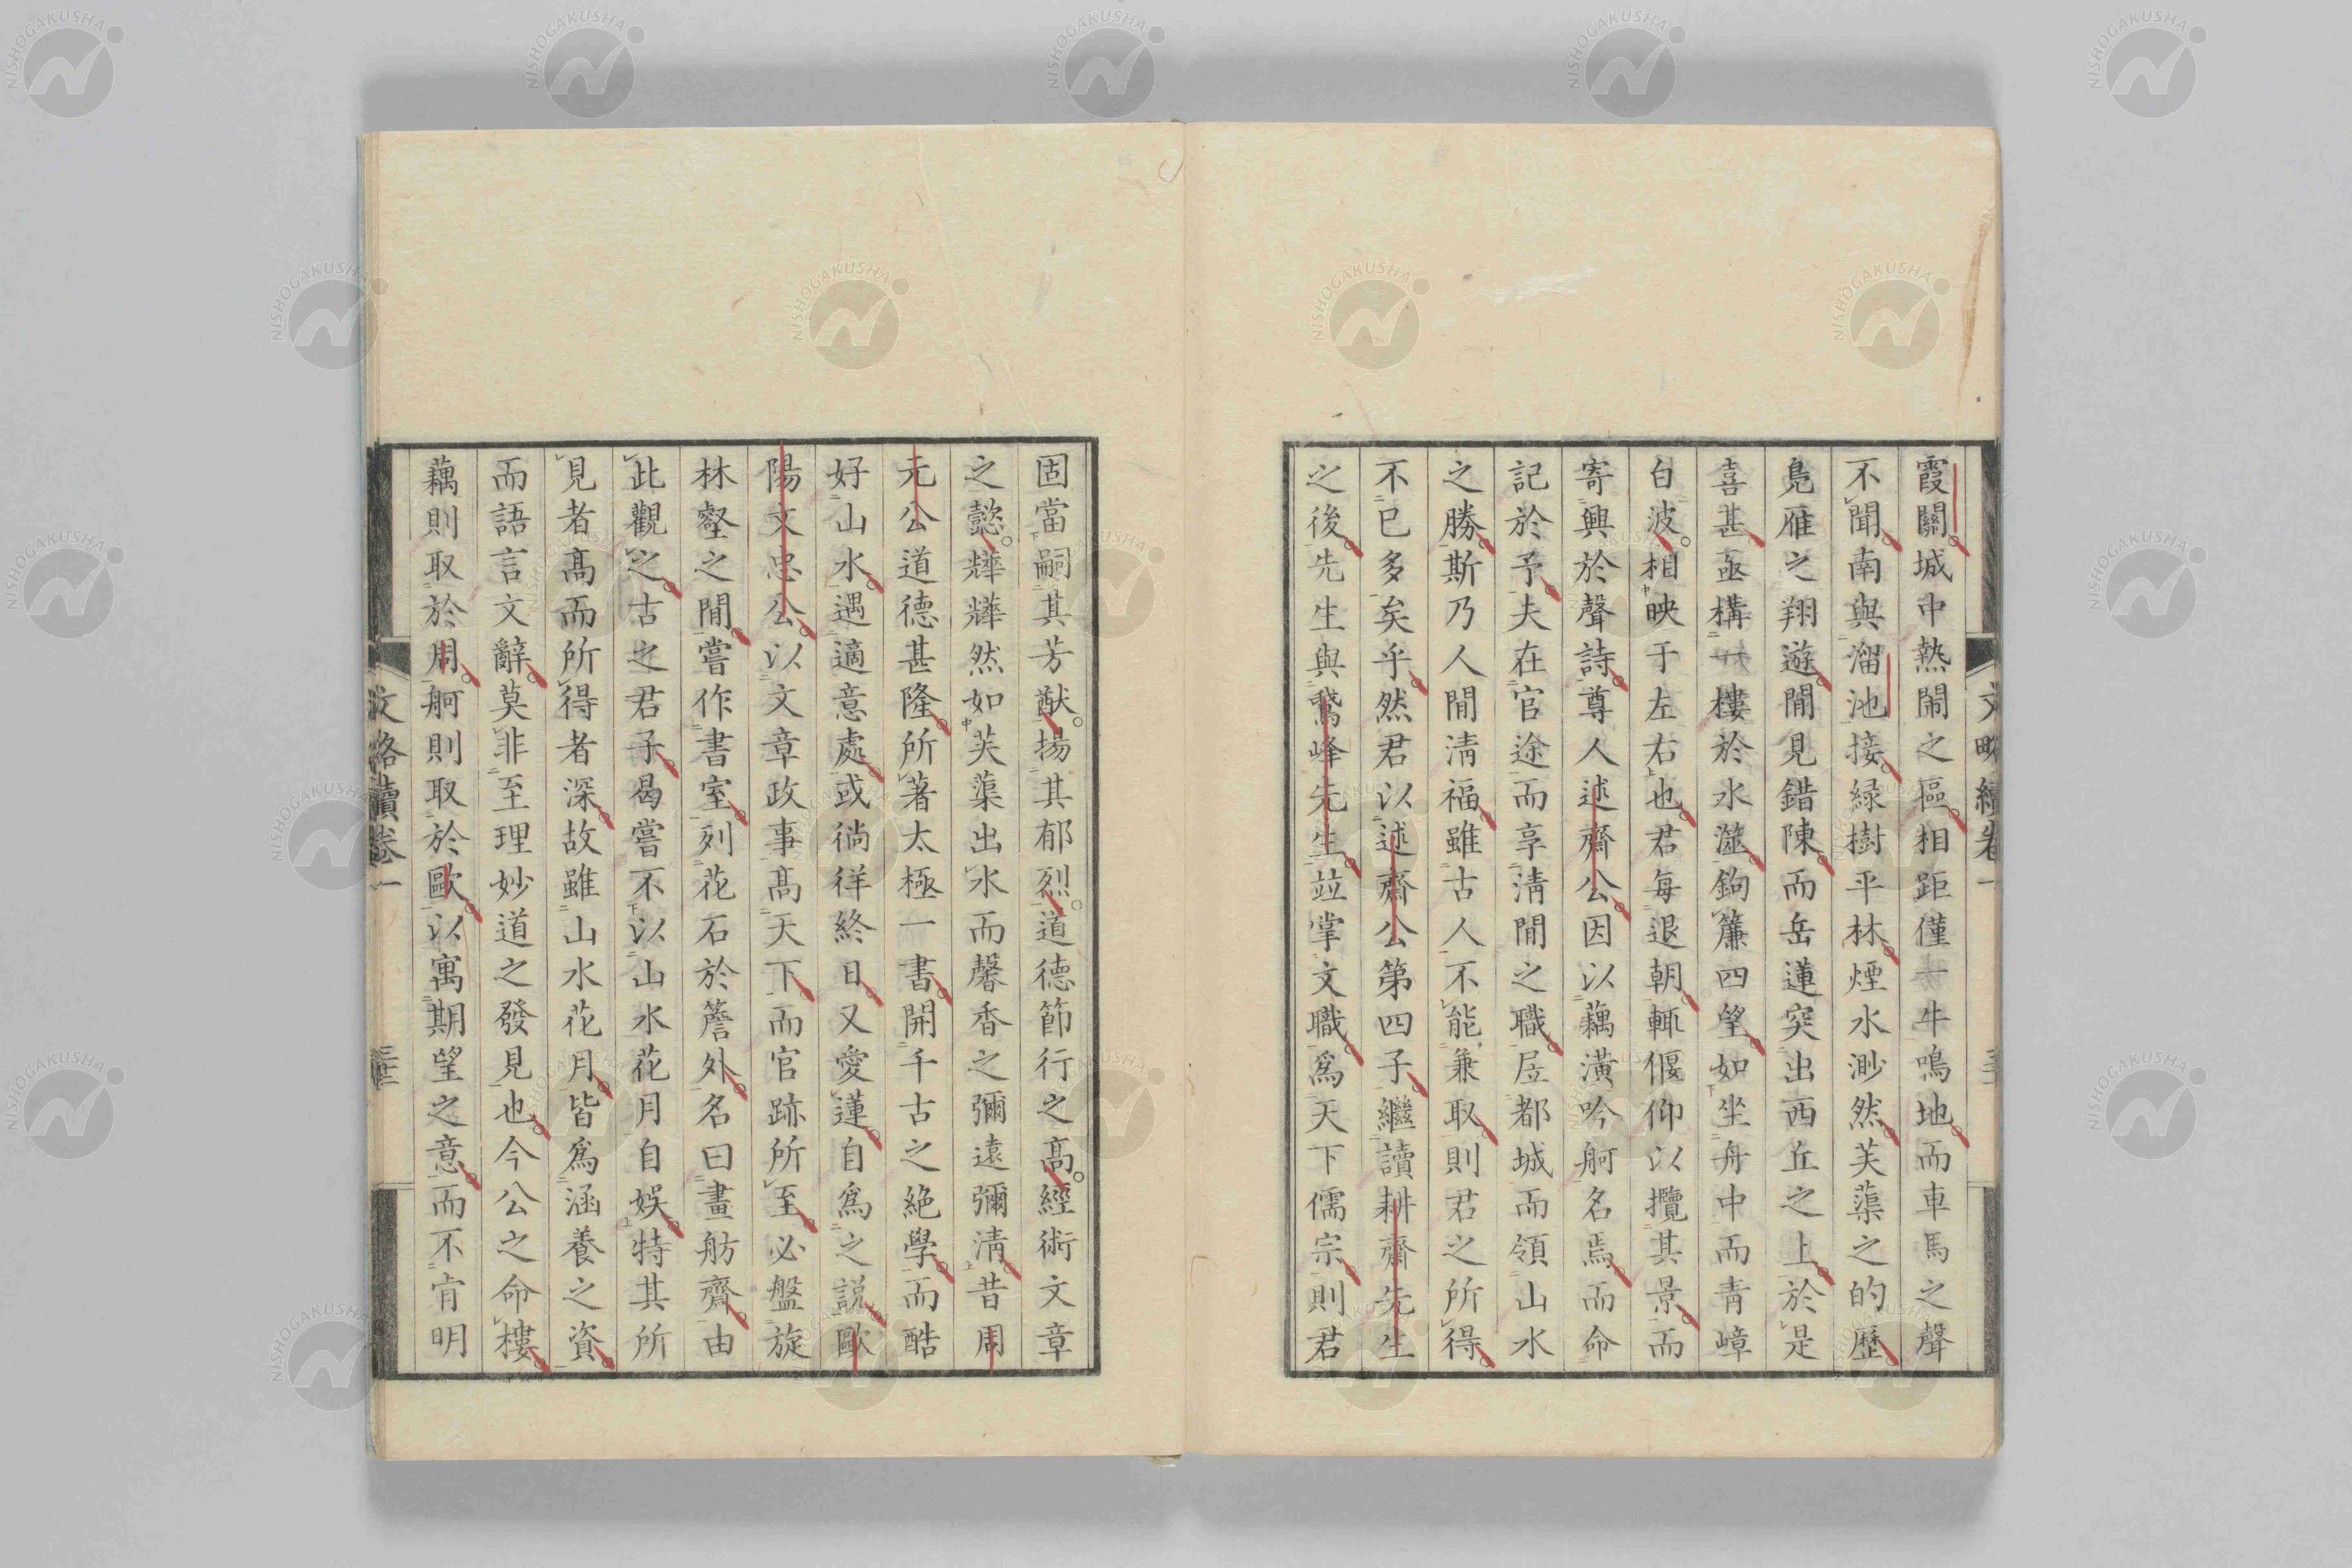 霞關城中熱鬧之樞相距僅一牛鳴地而車馬之聲
不聞南與溜池接緑樹平林煙水渺然芙蕖之的歷
鳧雁之翔遊閒見錯陳而岳蓮突出西丘之上於是
喜甚亟構一樓於水滋鉤簾四望如坐舟中而靑嶂
白波相映于左右也君每退朝輒偃仰以攬其景而
寄興於聲詩尊人述齋公因以藕潢吟舸名焉而命
記於予夫在官途而享淸閒之職居都城而領山水
之勝斯乃人閒淸福雖古人不能兼取則君之所得
不已多矣乎然君以述齋公第四子繼讀耕齋先生
之後先生與鵞峰先生竝掌文職爲天下儒宗則君
固當嗣其芳猷揚其郁烈道德節行之高經術文章
之懿韡韡然如芙蕖出水而馨香之彌遠彌淸昔周
元公道德甚隆所著太極一書開千古之絶學而酷
好山水遇適意處或徜徉終日又愛蓮自爲之説歐
陽文忠公以文章政事高天下而官跡所至必盤旋
林壑之閒嘗作書室列花石於簷外名曰畫舫齋由
此觀之古之君子曷嘗不以山水花月自娯特其所
見者高而所得者深故雖山水花月皆爲涵養之資
而語言文辭莫非至理妙道之發見也今公之命樓
藕則取於周舸則取於歐以寓期望之意而不肯明
文略續卷一
NISHOGAKUSHA